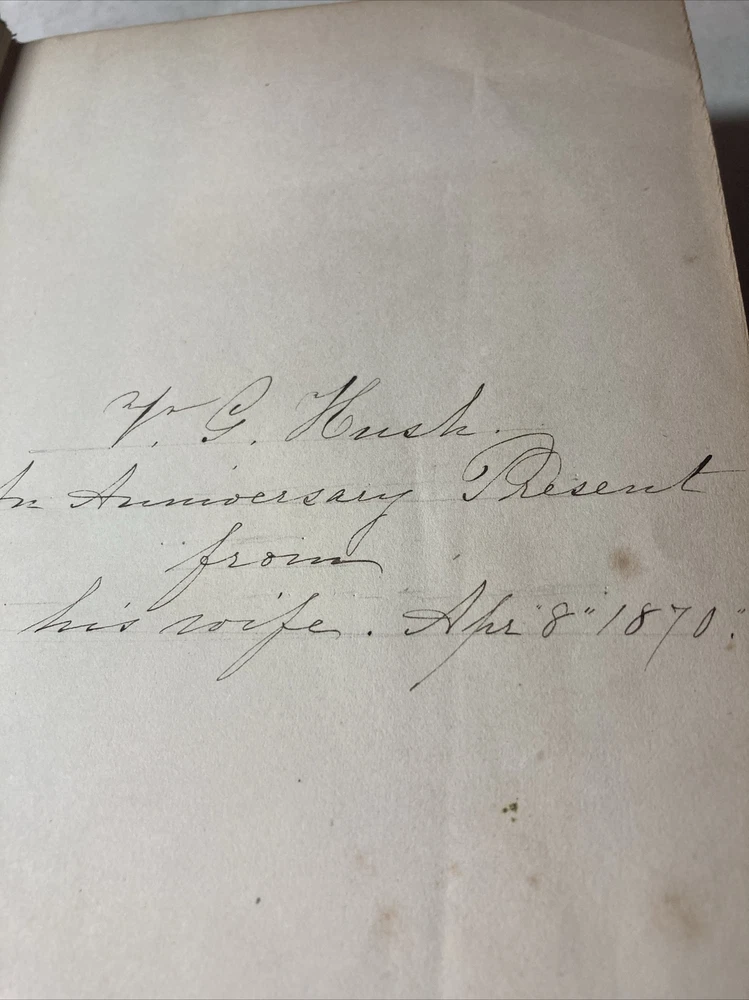 V. G. Hush.
An Anniversary Present
from
his wife. Apr "8" 1870."